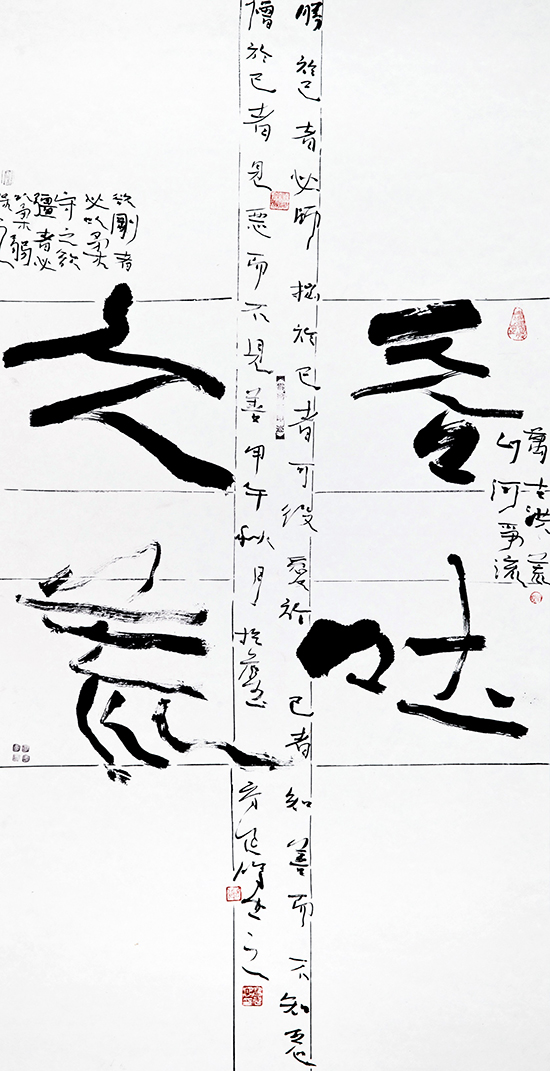 吞吐
大荒
萬古洪荒
山河爭流
勝於己者必師拙於己者可役愛於己者知善而不知惡
憎於己者見惡而不見善甲午秋月
欲剛者
必以柔
守之欲
彊者必
弱